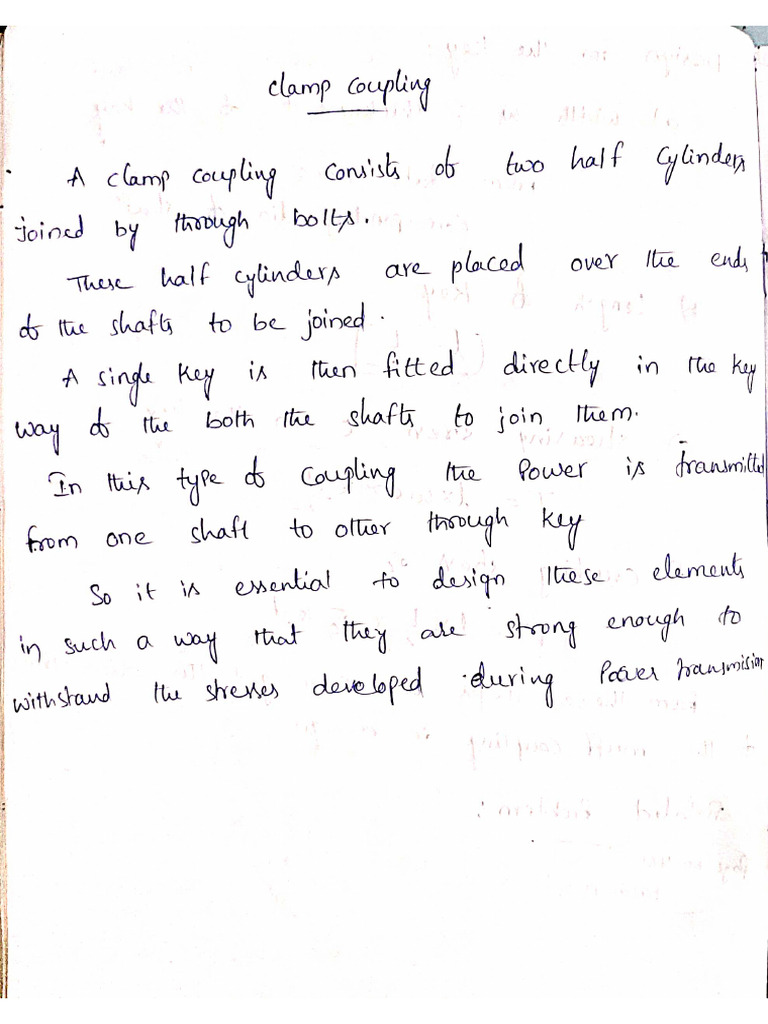 clamp coupling
A clamp coupling consists of two half cylinders
joined by through bolts.
These half cylinders are placed over the ends
of the shafts to be joined.
A single key is then fitted directly in the key
way of the both the shafts to join them.
In this type of coupling the power is transmitted
from one shaft to other through key
So it is essential to design these elements
in such a way that they are strong enough to
withstand the stresses developed during Power transmision